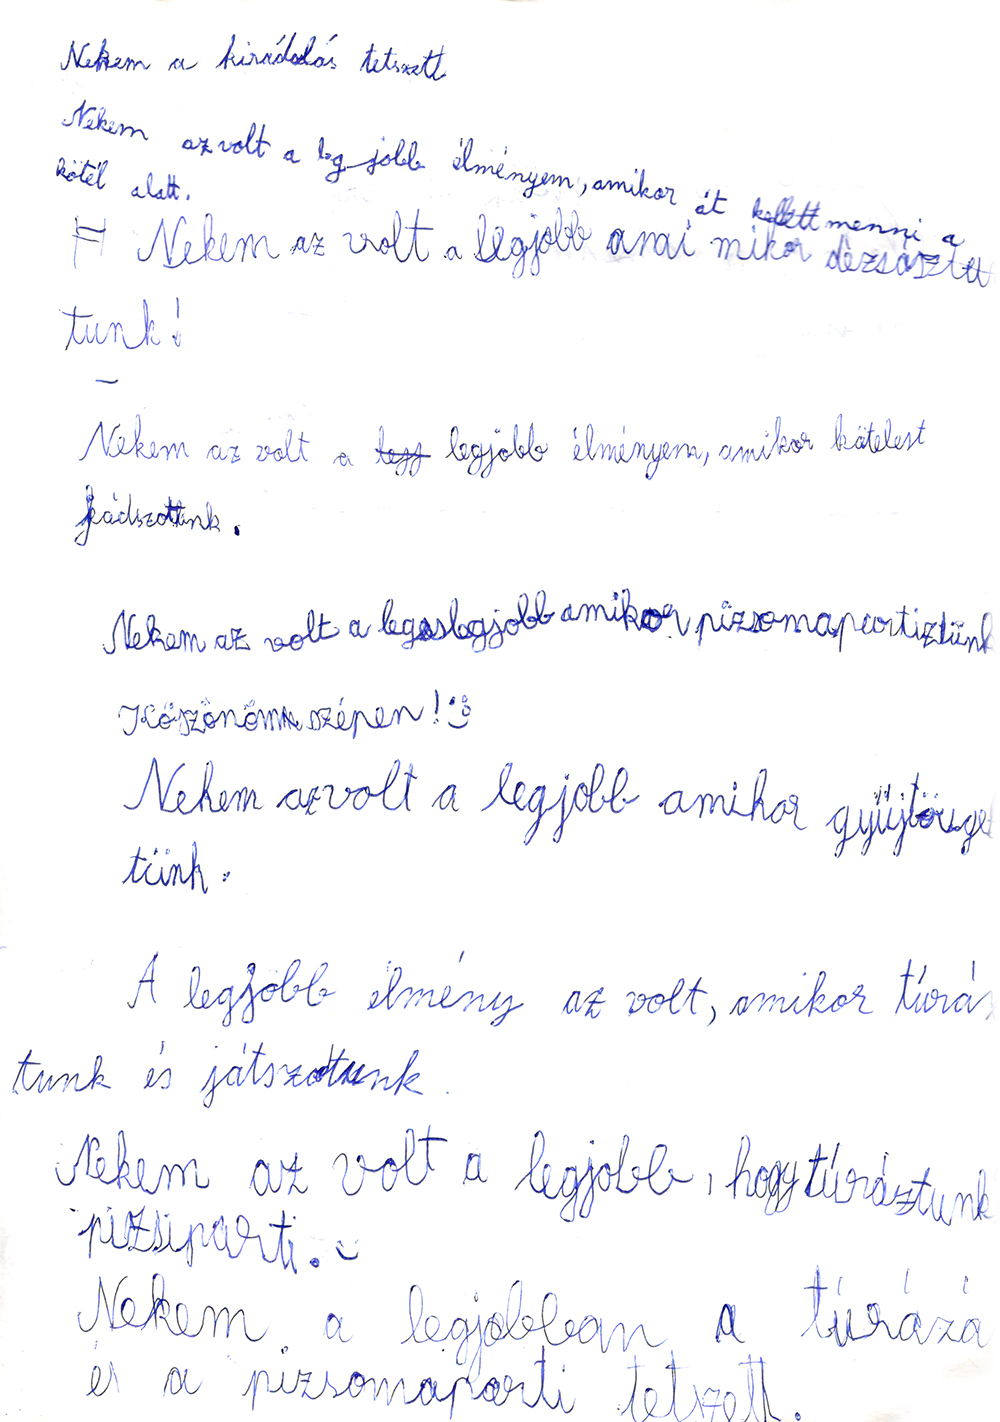 Nekem a kirádolás tetszett
Nekem az volt a leg jobb élményem, amikor át kellett menni a
kötél alatt.
Nekem az volt a legjobb amikor
tunk!
Nekem az volt a legjobb élményem, amikor kötelest
jádszottunk.
Nekem az volt a legeslegjobb amikor pizsomapartiztünk
Köszönöm szépen!
Nekem azvolt a legjobb amikor gyűjtöget
tünk.
A legjobb élmény az volt, amikor túráz
tunk és játszottunk.
Nekem az volt a legjobb, hogy túráztunk
pizsiparti.
Nekem a legjobban a túrázá
és a pizsomaparti tetszett.